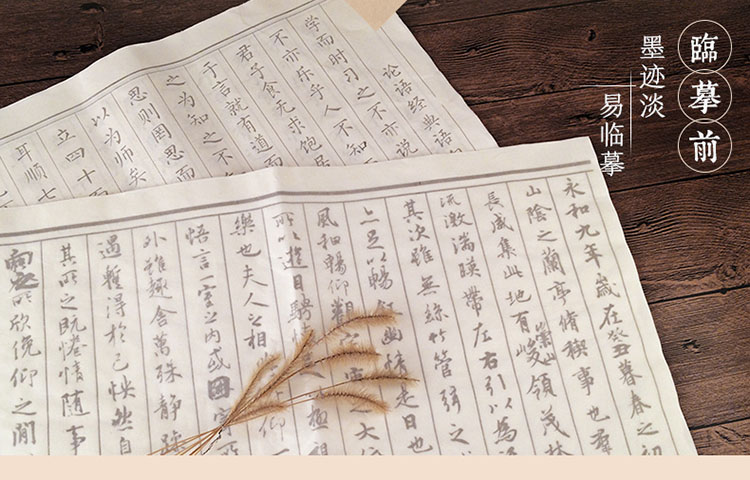 臨摹前
墨迹淡
易临摹
论语经典语
学而时习之不亦说
不亦乐乎人不知
君子食无求饱居
于言就有道而
之为知之不
思则罔思而
以为师矣
立四十而
耳顺七
永和九年歲在癸丑暮春之初
山陰之蘭亭脩稧事也羣
長咸集此地有崇山峻領茂林
流激湍暎帶左右引以為流
其次雖無絲竹管弦之
足以暢敘幽情是日也
風和暢仰觀宇宙之大
所以遊目騁懷極視
樂也夫人之相仰
悟言一室之內或因寄
外雖趣舍萬殊靜躁
遇暫得於己怏然自
其所之既惓情隨事
向之所欣俛仰之閒